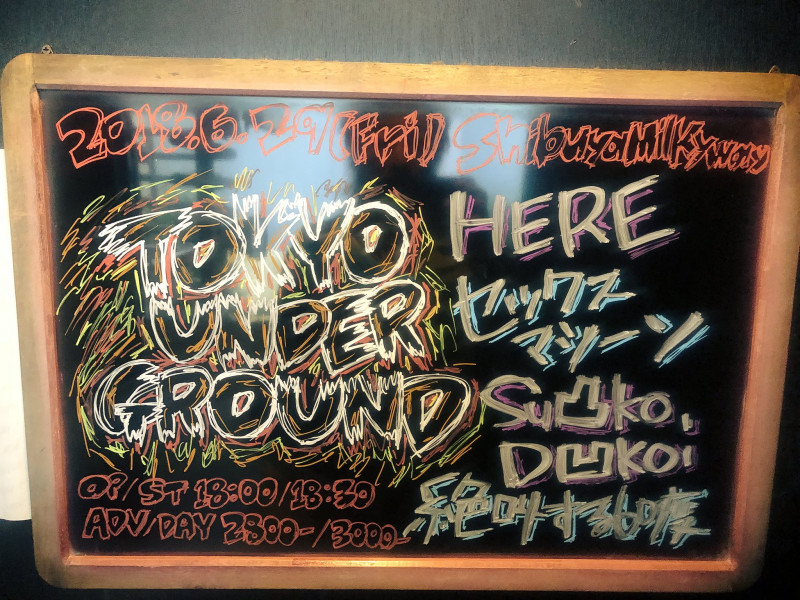 2018.6.29(Fri) Shibuya Milkyway
TOKYO
UNDER
GROUND
HERE
セックス
マシーン
Su凸ko,
D凹koi
絶叫する60度
OP/ST 18:00/18:30
ADV/DAY 2500-/3000-